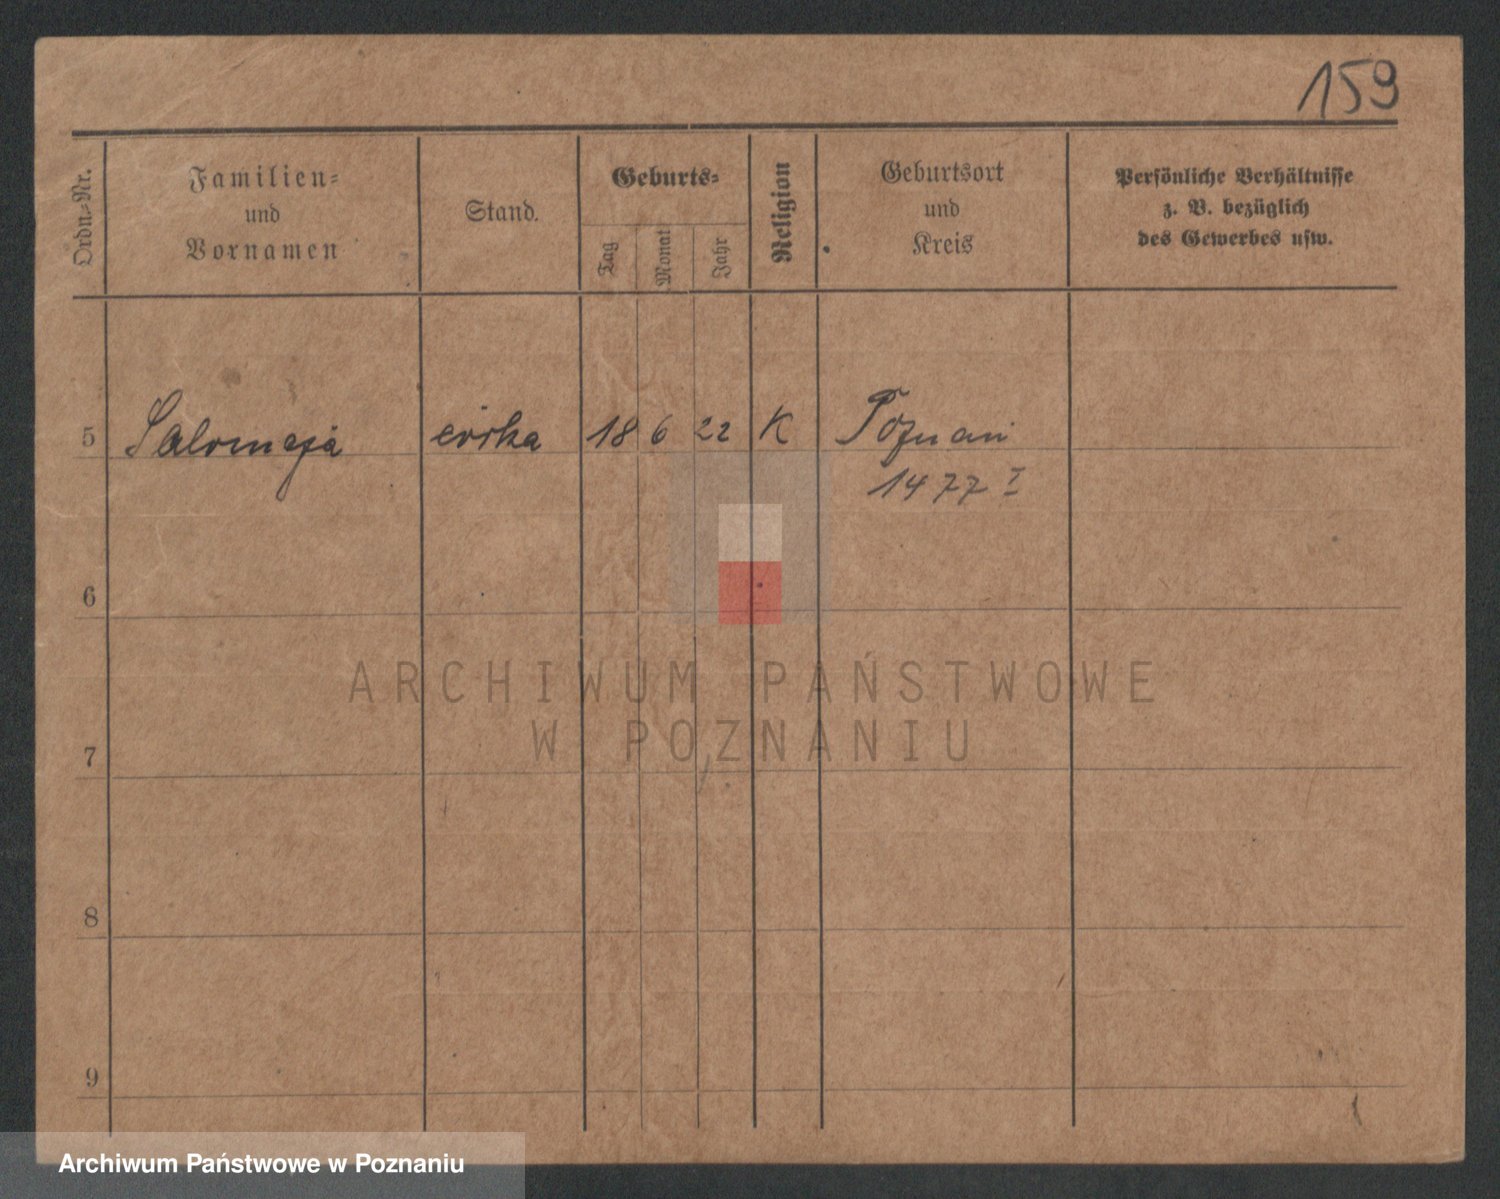 159
Ordn.=Nr.
Familien=
und
Vornamen
Stand.
Geburts=
Tag
Monat
Jahr
Religion
Geburtsort
und
Kreis
Persönliche Verhältnisse
z. B. bezüglich
des Gewerbes usw.
5 Salomeja córka 18 6 22 K Poznań
1477 I
6
7
8
9
ARCHIWUM PAŃSTWOWE
W POZNANIU
Archiwum Państwowe w Poznaniu